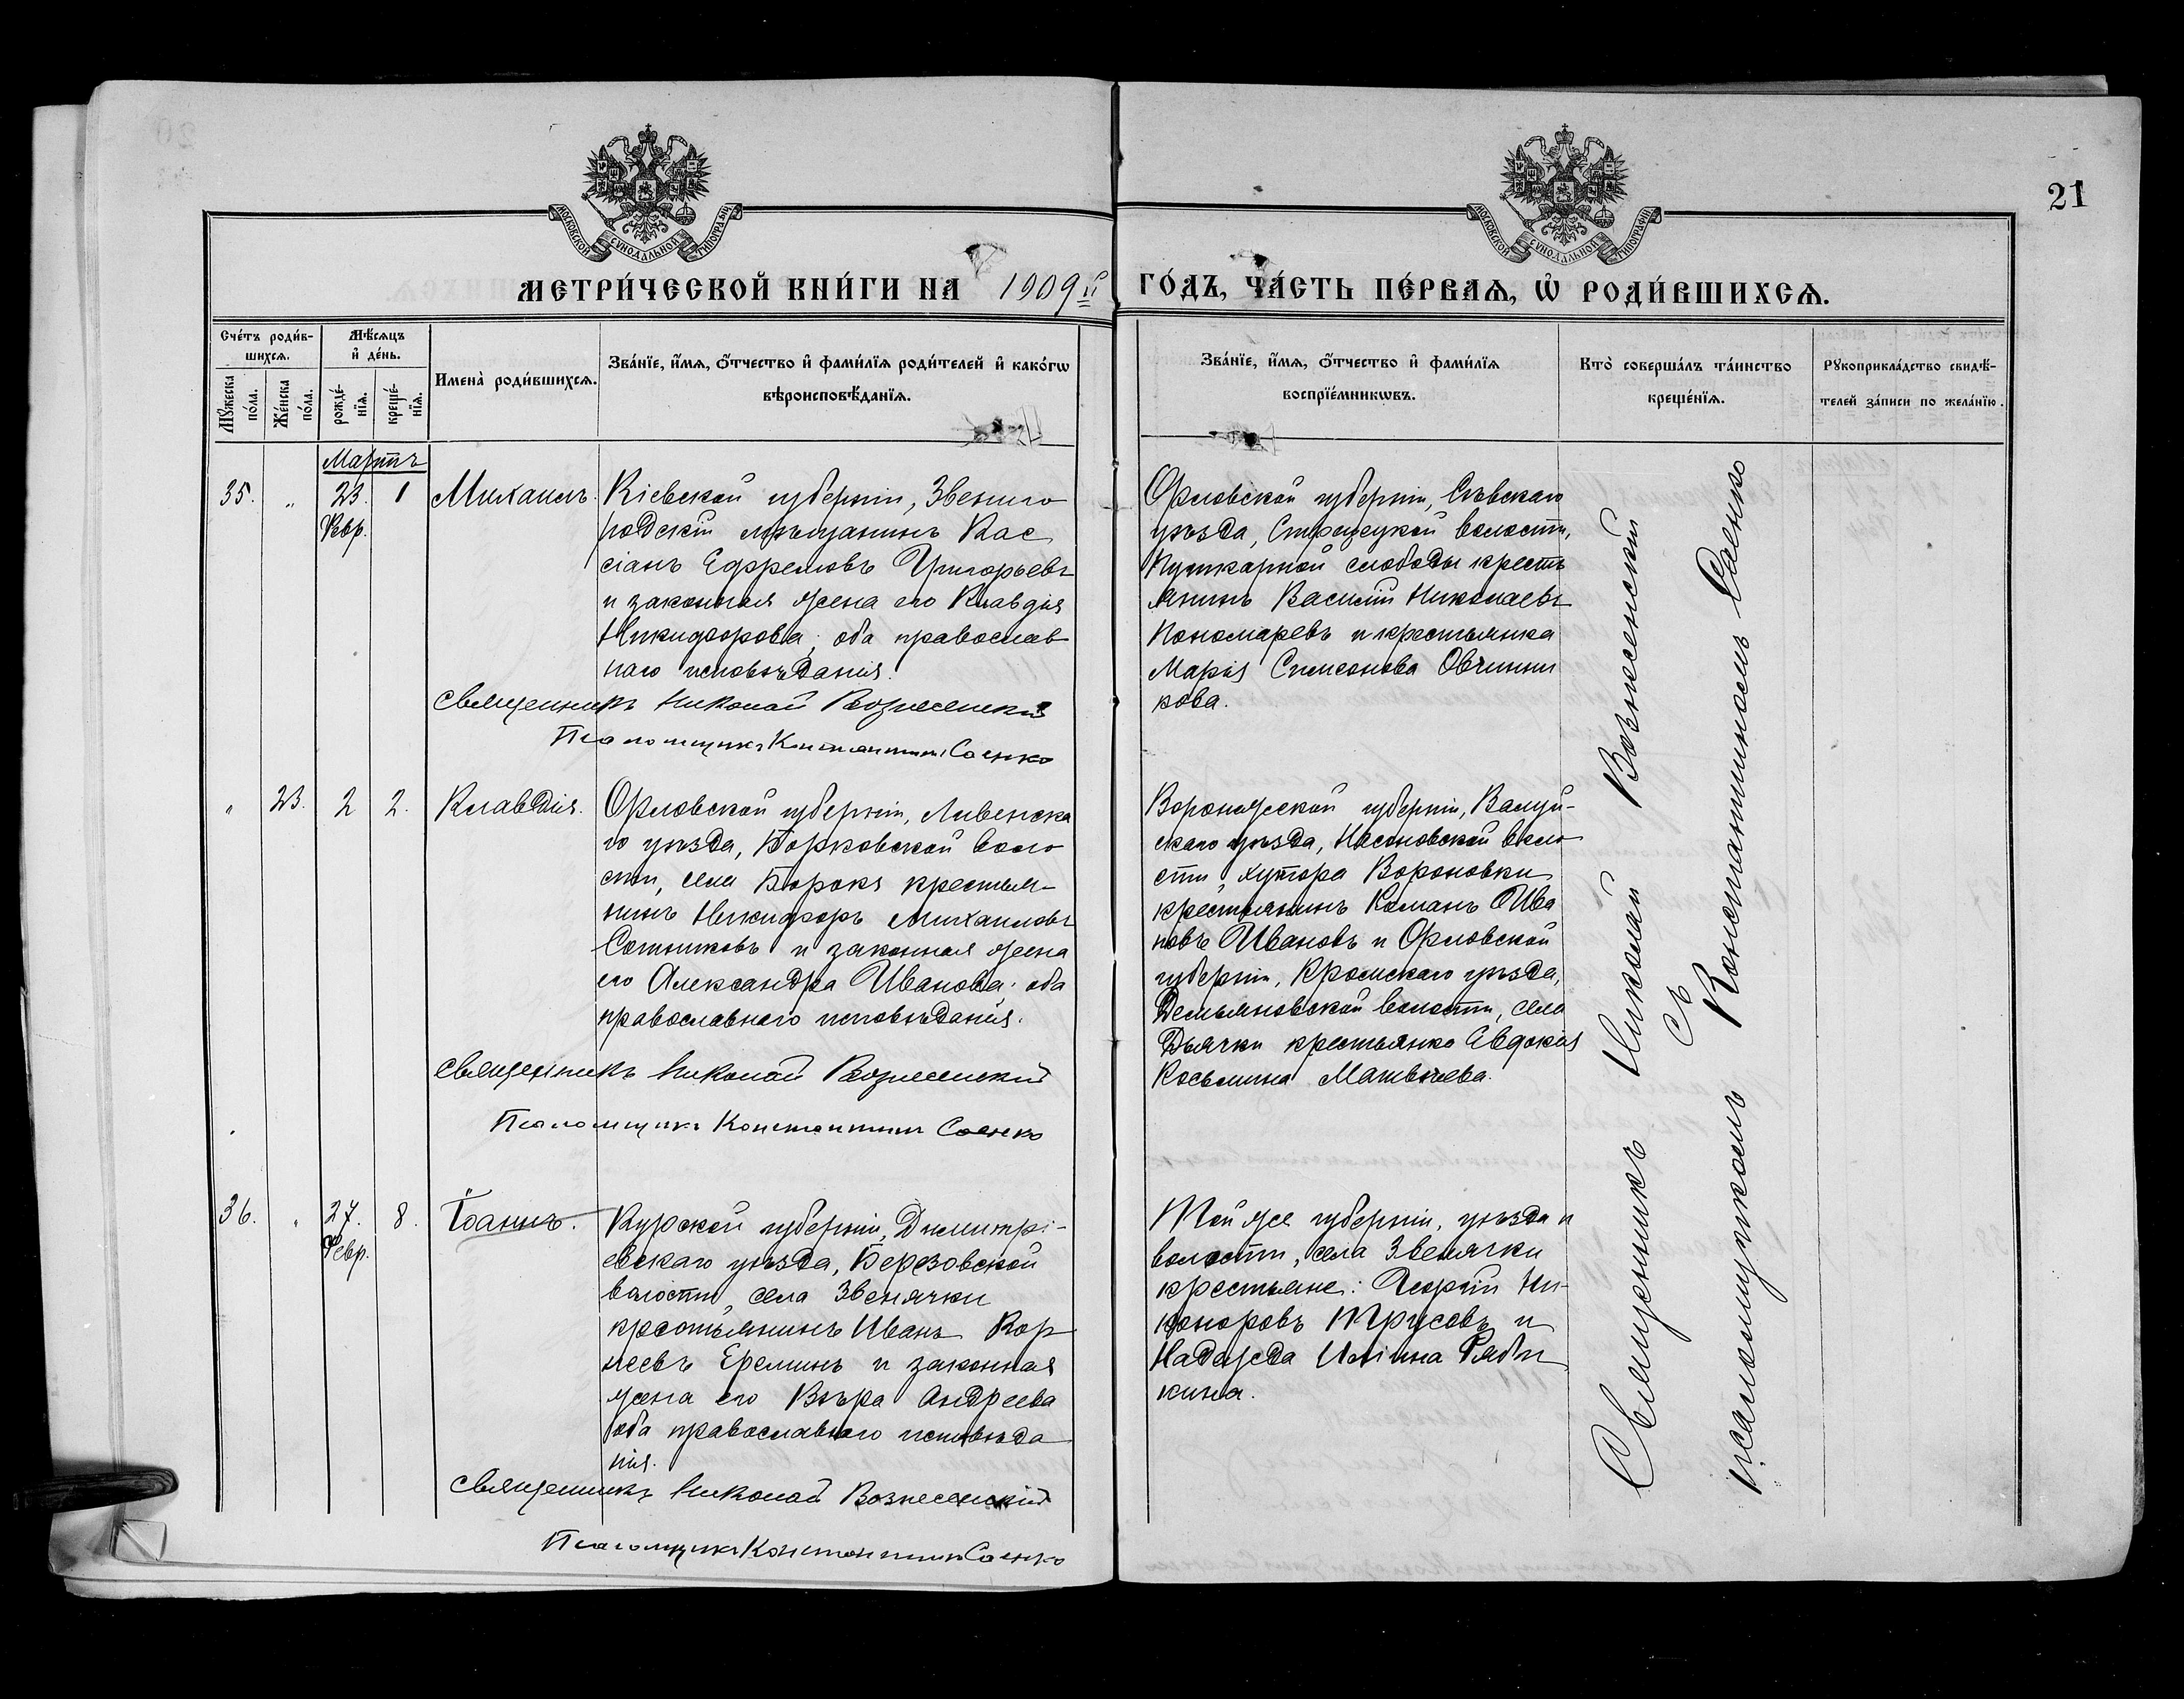 21
МОСКОВСКОЙ СУНОДАЛЬНОЙ ТИПОГРАФІИ
МОСКОВСКОЙ СУНОДАЛЬНОЙ ТИПОГРАФІИ
МЕТРИ́ЧЕСКОЙ КНИ́ГИ НА 1909й ГО́ДЪ, ЧА́СТЬ ПЕ́РВАѦ, Ѡ҆ РОДИ́ВШИХСѦ.
Сче́тъ роди́в-
шихсѧ.
Мѣ́сѧцъ
и҆ де́нь.
Мꙋжеска
по́ла.
Же́нска
по́ла.
рожде́-
нїѧ.
креще́-
нїѧ.
Имена̀ роди́вшихсѧ.
Зва́нїе, и҆́мѧ, ѻ҆́тчество и҆ фами́лїѧ роди́телей и҆ како́гѡ
вѣроисповѣ́данїѧ.
Зва́нїе, и҆́мѧ, ѻ҆́тчество и҆ фами́лїѧ
воспрїе́мникѡвъ.
Кто̀ соверша́лъ та́инство
креще́нїѧ.
Рꙋкоприкла́дство свидѣ́-
телей за́писи по жела́нїю.
Мартъ
35. „ 23. 1 Михаилъ.
Февр.
Кіевской губерніи, Звениго
родскій мѣщанинъ Кас
сіанъ Ефремовъ Григорьевъ
и законная жена его Клавдія
Никифорова; оба православ
наго исповѣданія.
Священникъ Николай Вознесенскій
Псаломщикъ Константинъ Саенко
Орловской губерніи, Сѣвскаго
уѣзда, Стрѣлецкой волости,
Пушкарной слободы кресть
янинъ Василій Николаевъ
Пономаревъ и крестьянка
Марія Симеонова Овчинни
кова.
„ 23. 2 2. Клавдія.
Орловской губерніи, Ливенска
го уѣзда, Борковской воло
сти, села Борокъ крестья-
нинъ Никифоръ Михаиловъ
Сотниковъ и законная жена
его Александра Иванова; оба
православнаго исповѣданія.
Священникъ Николай Вознесенскій
Псаломщикъ Константинъ Саенко
Воронежской губерніи, Валуй-
скаго уѣзда, Насоновской воло
сти, хутора Вороновки
крестьянинъ Романъ Ива
новъ Ивановъ и Орловской
губерніи, Кромскаго уѣзда,
Демьяновской волости, села
Дьячки крестьянка Евдокія
Косьмина Матвѣева.
36. „ 27. 8. Іоаннъ.
Февр.
Курской губерніи, Димитрі-
евскаго уѣзда, Березовской
волости, села Звенячки
крестьянинъ Иванъ Кор
неевъ Ереминъ и законная
жена его Вѣра Андреева
оба православнаго исповѣда
нія.
Священникъ Николай Вознесенскій
Псаломщикъ Константинъ Саенко
Той же губерніи, уѣзда и
волости, села Звенячки
крестьяне: Георгій Ни-
каноровъ Трусовъ и
Надежда Иліина Рябы
кина.
Священникъ Николай Вознесенскій
съ
псаломщикомъ Константиномъ Саенко